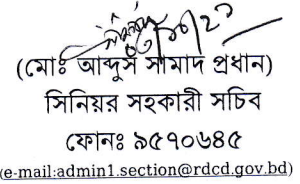 (মোঃ আব্দুস সামাদ প্রধান)
সিনিয়র সহকারী সচিব
ফোনঃ ৯৫৭০৬৪৫
(e-mail:admin1.section@rdcd.gov.bd)